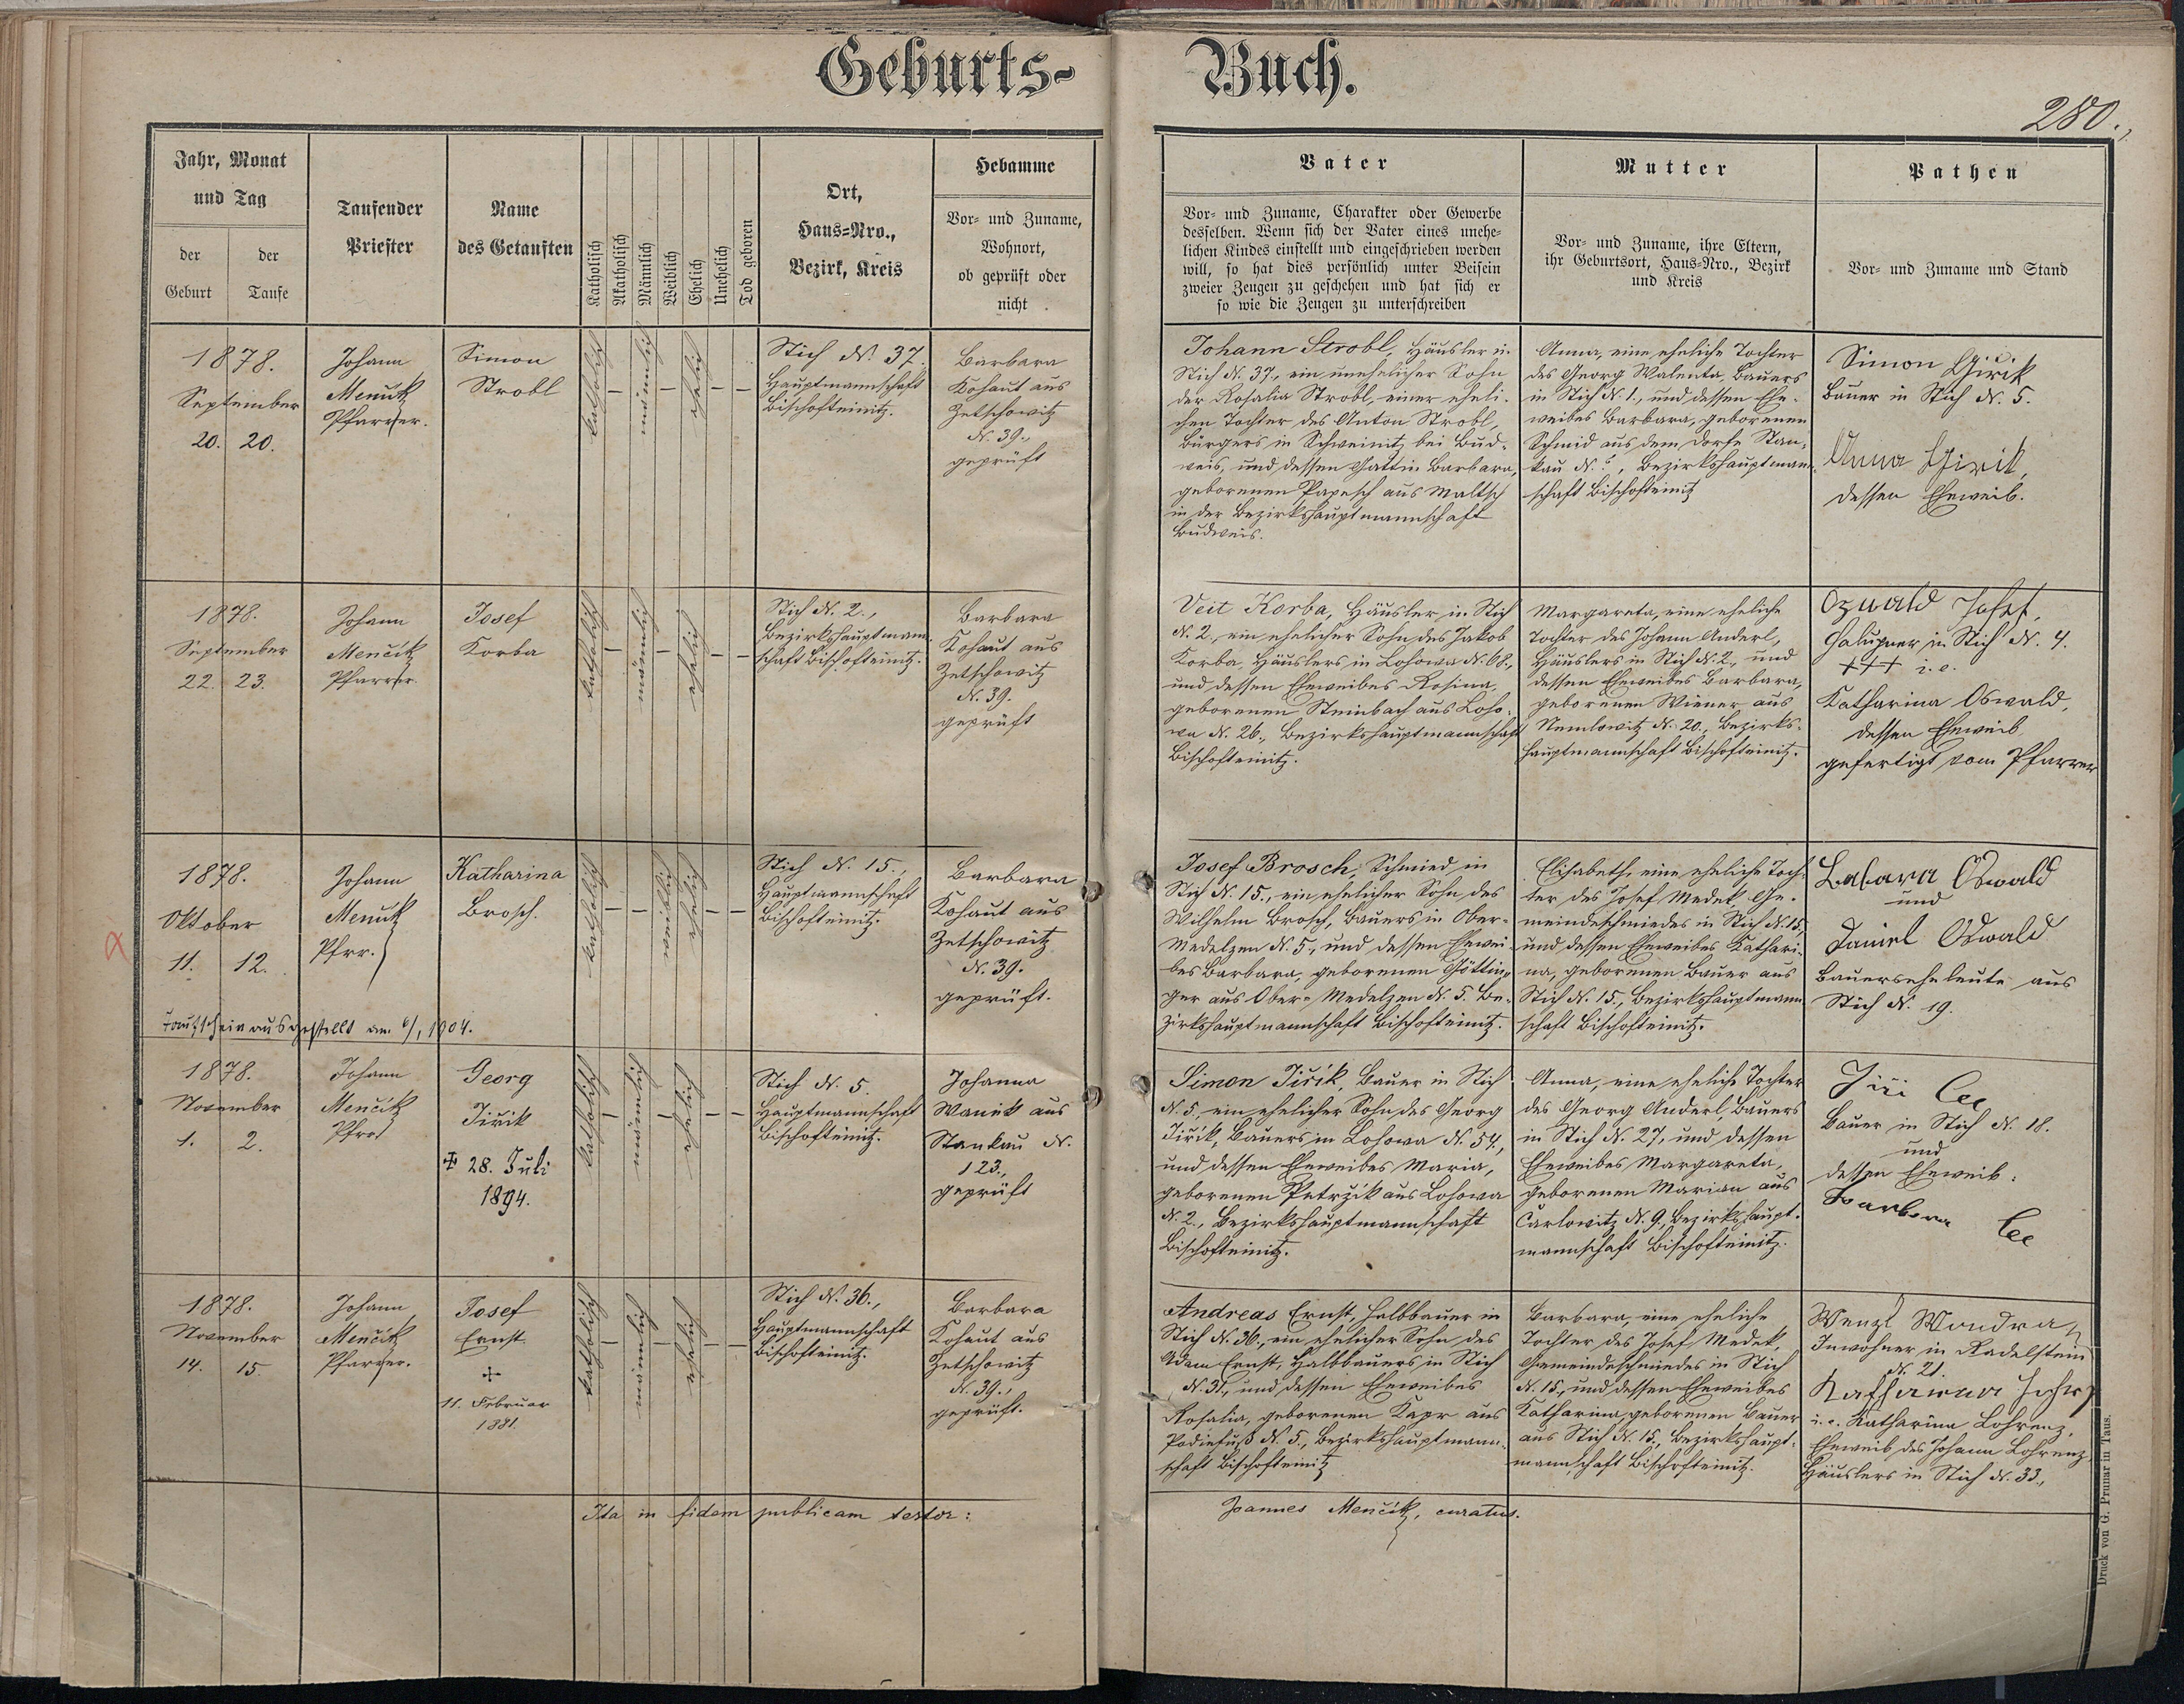 Geburts- Buch.
280.,
Jahr, Monat
und Tag
der Geburt
der Taufe
Taufender
Priester
Name
des Getauften
Katholisch
Akatholisch
Männlich
Weiblich
Ehelich
Unehelich
Tod geboren
Ort,
Haus-Nro.,
Bezirk, Kreis
Hebamme
Vor- und Zuname,
Wohnort,
ob geprüft oder
nicht
Vater
Vor- und Zuname, Charakter oder Gewerbe
desselben. Wenn sich der Vater eines unehe-
lichen Kindes einstellt und eingeschrieben werden
will, so hat dies persönlich unter Beisein
zweier Zeugen zu geschehen und hat sich er
so wie die Zeugen zu unterschreiben
Mutter
Vor- und Zuname, ihre Eltern,
ihr Geburtsort, Haus-Nro., Bezirk
und Kreis
Pathen
Vor- und Zuname und Stand
1878.
September
20. 20.
Johann
Menčik
Pfarrer.
Simon
Strobl
katholisch
–
männlich
–
ehelich
–
–
Stich N. 37.
Hauptmannschaft
Bischofteinitz.
Barbara
Kohaut aus
Zetschowitz
N. 39.,
geprüft
Johann Strobl, Häusler in
Stich N. 37., ein unehelicher Sohn
der Rosalia Strobl, einer eheli-
chen Tochter des Anton Strobl,
Bürgers in Schweinitz bei Bud-
weis, und dessen Gattin Barbara,
geborenen Papesch aus Maltsch
in der Bezirkshauptmannschaft
Budweis.
Anna, eine eheliche Tochter
des Georg Walenta, Bauers
in Stich N. 1., und dessen Ehe-
weibes Barbara, geborenen
Schmid aus dem Dorfe Stan-
kau N. ?, Bezirkshauptmann-
schaft Bischofteinitz
Simon Girik
Bauer in Stich N. 5.
Anna Girik,
dessen Eheweib.
1878.
September
22. 23.
Johann
Menčik
Pfarrer.
Josef
Korba
katholisch
–
männlich
–
ehelich
–
–
Stich N. 2.,
Bezirkshauptmann-
schaft Bischofteinitz.
Barbara
Kohaut aus
Zetschowitz
N. 39.
geprüft
Veit Korba, Häusler in Stich
N. 2, ein ehelicher Sohn des Jakob
Korba, Häuslers in Lohowa N. 68.,
und dessen Eheweibes Rosina,
geborenen Steinbach aus Loho-
wa N. 26., Bezirkshauptmannschaft
Bischofteinitz.
Margareta, eine eheliche
Tochter des Johann Anderl,
Häuslers in Stich N. 2., und
dessen Eheweibes Barbara,
geborenen Wiener aus
Nemlowitz N. 20., Bezirks-
hauptmannschaft Bischofteinitz.
Ozwald Josef,
Chalupner in Stich N. 4.
+++ i. e.
Katharina Oswald,
dessen Eheweib
gefertigt vom Pfarrer
1878.
Oktober
11. 12.
Johann
Menčik
Pfrr.
Katharina
Brosch.
katholisch
–
–
weiblich
ehelich
–
–
Stich N. 15.,
Hauptmannschaft
Bischofteinitz.
Barbara
Kohaut aus
Zetschowitz
N. 39.
geprüft.
Josef Brosch, Schmied in
Stich N. 15., ein ehelicher Sohn des
Wilhelm Brosch, Bauers in Ober-
Medelzen N. 5., und dessen Ehewei-
bes Barbara, geborenen Göttin-
ger aus Ober-Medelzen N. 5. Be-
zirkshauptmannschaft Bischofteinitz.
Elisabeth, eine eheliche Toch-
ter des Josef Medek, Ge-
meindeschmiedes in Stich N. 15,
und dessen Eheweibes Kathari-
na, geborenen Bauer aus
Stich N. 15., Bezirkshauptmann-
schaft Bischofteinitz.
Oswald
und
Daniel Oswald
Bauerseheleute aus
Stich N. 19.
Taufschein ausgestellt am 6/1 1904.
1878.
November
1. 2.
Johann
Menčik
Georg
Jiřik
✠ 28. Juli
1894.
katholisch
–
männlich
–
ehelich
–
–
Stich N. 5
Hauptmannschaft
Bischofteinitz.
Johanna
Wanek aus
Stankau N.
123.,
geprüft
Simon Jiřik, Bauer in Stich
N. 5, ein ehelicher Sohn des Georg
Jiřik, Bauers in Lohowa N. 54,
und dessen Eheweibes Maria,
geborenen Petržik aus Lohowa
N. 2., Bezirkshauptmannschaft
Bischofteinitz.
Anna, eine eheliche Tochter
des Georg Anderl, Bauers
in Stich N. 27, und dessen
Eheweibes Margareta,
geborenen Marian aus
Carlowitz N. 9., Bezirkshaupt-
mannschaft Bischofteinitz.
Jiři
Bauer in Stich N. 18.
und
dessen Eheweib:
Barbora
1878.
November
14. 15.
Johann
Menčik
Pfarrer.
Josef
Ernst.
✠
11. Februar
1881.
katholisch
–
männlich
–
ehelich
–
–
Stich N. 36.,
Hauptmannschaft
Bischofteinitz.
Barbara
Kohaut aus
Zetschowitz
N. 39.,
geprüft.
Andreas Ernst, Halbbauer in
Stich N. 36., ein ehelicher Sohn des
Adam Ernst, Halbbauers in Stich
N. 31., und dessen Eheweibes
Rosalia, geborenen Kapr aus
Podiefuß N. 5., Bezirkshauptmann-
schaft Bischofteinitz
Barbara, eine eheliche
Tochter des Josef Medek,
Gemeindeschmiedes in Stich
N. 15., und dessen Eheweibes
Katharina, geborenen Bauer
aus Stich N. 15., Bezirkshaupt-
mannschaft Bischofteinitz.
Wenzl Wondra
Inwohner in Radelstein
N. 21.
Katharina
i. e. Katharina Lohrenz,
Eheweib des Johann Lohrenz,
Häuslers in Stich N. 33.,
Ita in fidem publicam testor:
Joannes Menčik, curatus.
Druck von G. Prunar in Taus.